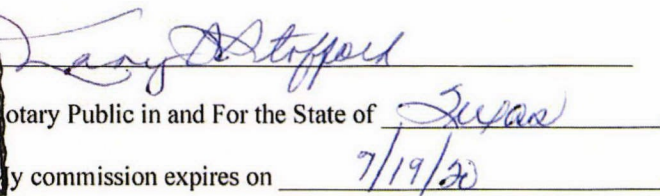 otary Public in and For the State of Texas
y commission expires on 7/19/20